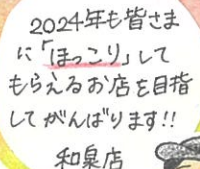 2024年も皆さま
に「ほっこり」して
もらえるお店を目指
してがんばります!!
和泉店